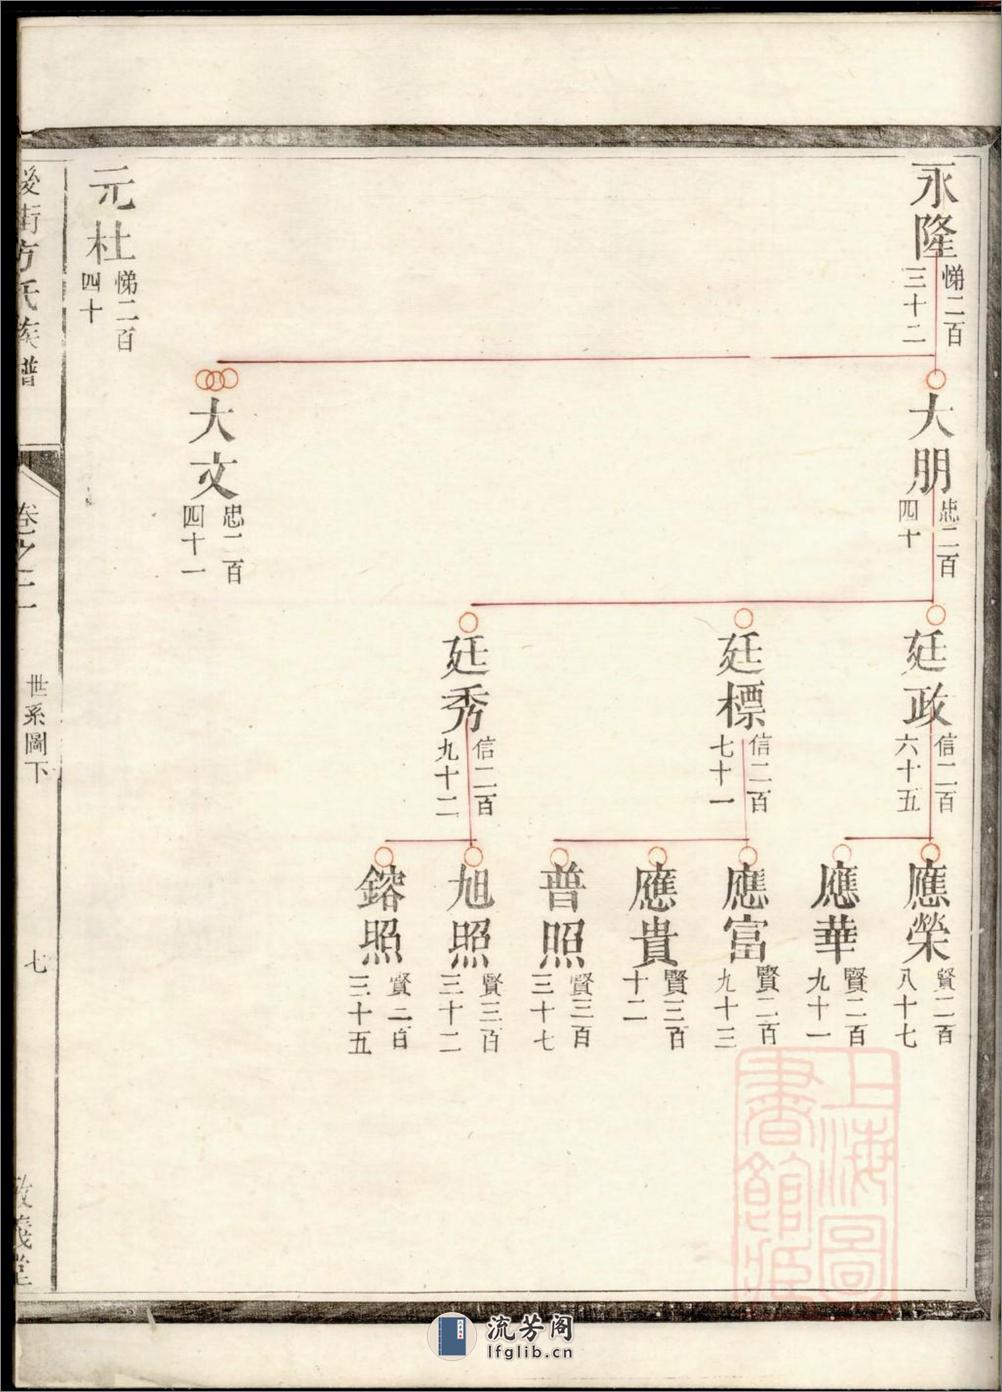 永隆
悌二百
三十二
大朋
忠二百
四十
廷政
信二百
六十五
應榮
賢二百
八十七
應華
賢二百
九十一
廷標
信二百
七十一
應富
賢二百
九十三
應貴
賢三百
十二
普照
賢三百
三十七
廷秀
信二百
九十二
旭照
賢三百
三十二
鎔照
賢三百
三十五
大文
忠二百
四十一
元杜
悌二百
四十
方氏族譜
卷之二
世系圖下
七
義堂
上海圖
書館藏
流芳阁
lfglib.cn